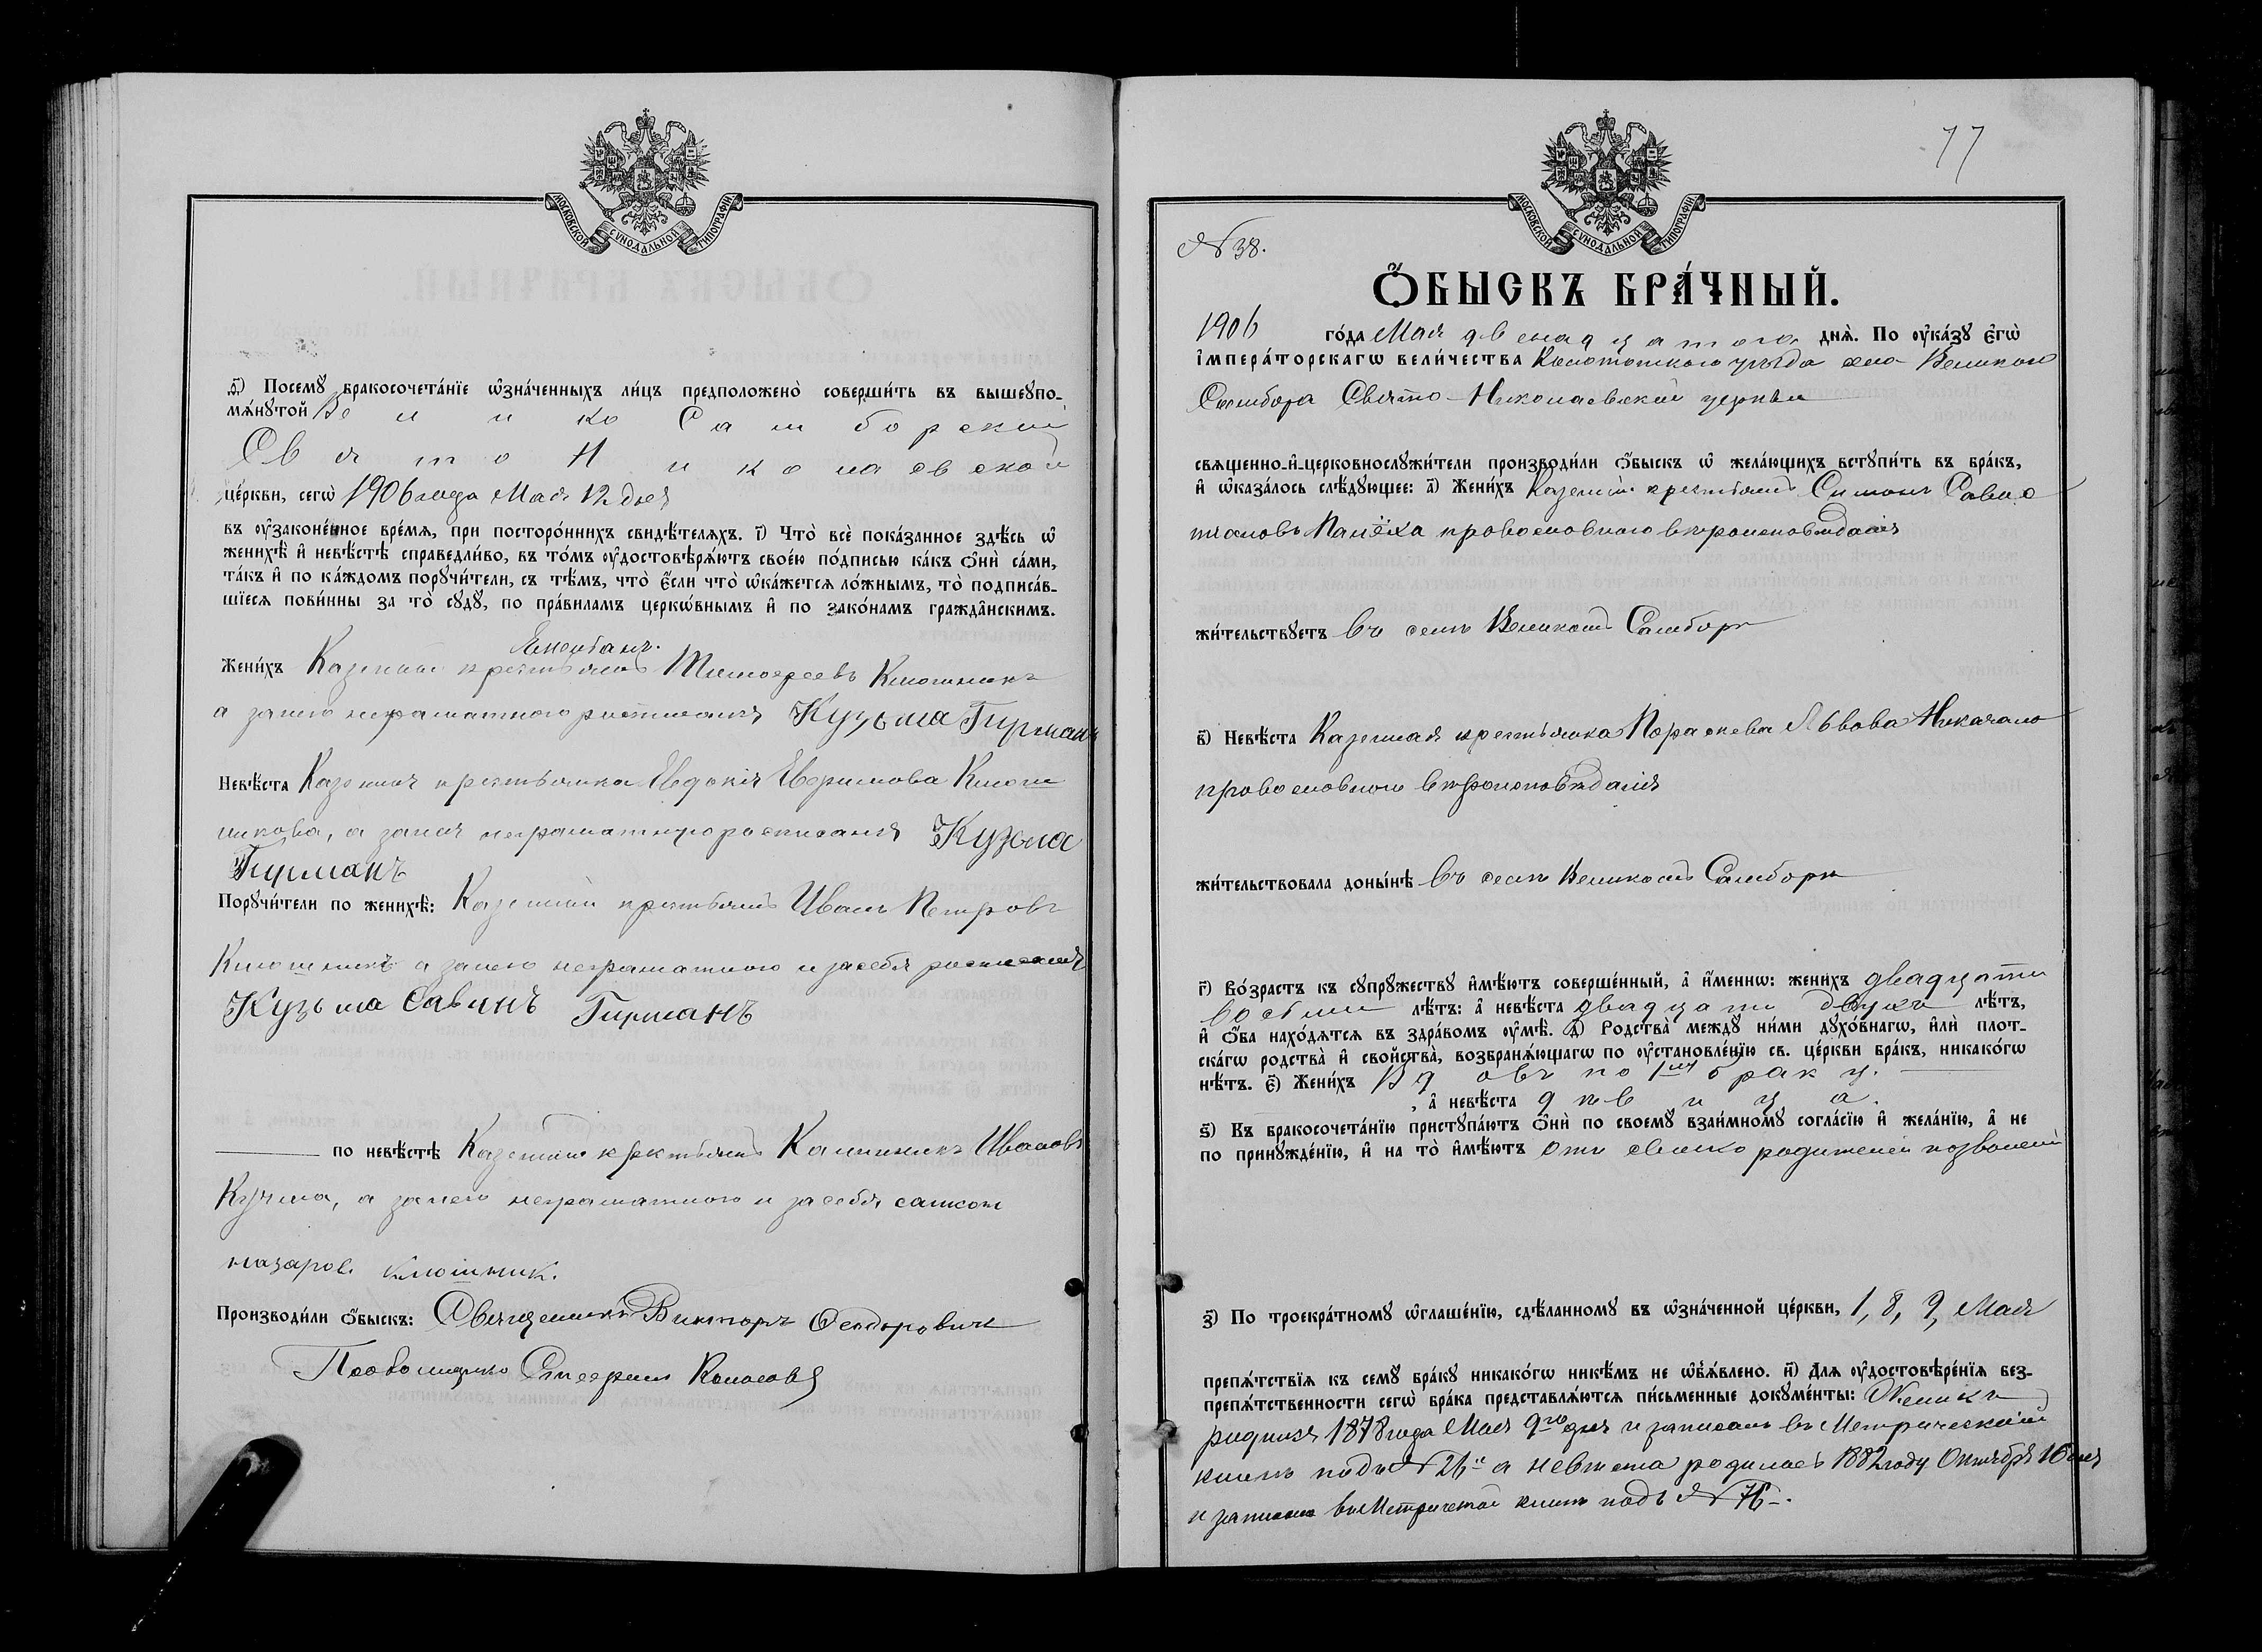 МОСКОВСКОЙ СѴНОДАЛЬНОЙ ТИПОГРАФІИ
ѳ҃) Посемꙋ̀ бракосочета́нїе ѡ҆зна́ченныхъ ли́цъ предположено̀ соверши́ть въ вышеꙋпо-
мѧ́нꙋтой Велико Самборской
Свято Николаевской
це́ркви, сегѡ̀ 1906 года Мая 12 дня
въ ᲂу҆законе́нное вре́мѧ, при посторо́ннихъ свидѣ́телѧхъ. і҃) Что̀ всѐ пока́занное здѣ́сь ѡ҆
женихѣ̀ и҆ невѣ́стѣ справедли́во, въ то́мъ ᲂу҆достовѣрѧ́ютъ свое́ю по́дписью ка́къ ѻ҆нѝ са́ми,
та́къ и҆ по ка́ждомъ порꙋчи́тели, съ тѣ́мъ, что̀ є҆́сли что̀ ѡ҆ка́жетсѧ ло́жнымъ, то̀ подписа́в-
шїесѧ пови́нны за то̀ сꙋдꙋ̀, по пра́виламъ церко́внымъ и҆ по зако́намъ гражда́нскимъ.
Жени́хъ Казенный крестьянинъ Тимофеевъ Клюшникъ
а занего неграматного росписался Кузьма Гирманъ
Невѣ́ста Казенная крестьянка Евдокія Клюш
никова, а занея неграматную росписался Кузма
Гирманъ
Порꙋчи́тели по женихѣ̀: Казенный крестьянинъ Иванъ Петровъ
Клюшникъ а занего неграматного и засебя росписался
Кузьма Савинъ Гирманъ
по невѣ́стѣ Казенный крестьянинъ Каленикъ Ивановъ
Кучма, а занего неграматного и засебя
назаров. клюшник.
Производи́ли ѻ҆́быскъ: Священникъ Викторъ Феодоровичъ
77
МОСКОВСКОЙ СѴНОДАЛЬНОЙ ТИПОГРАФІИ
№ 38.
Ѻ҆́БЫСКЪ БРА́ЧНЫЙ.
1906 го́да Мая двенадцатого днѧ̀. По ᲂу҆ка́зꙋ Є҆гѡ̀
І҆мпера́торскагѡ вели́чества Конотопского уѣзда села Великого
Самбора Свято-Николаевской церкви
свѧщенно-и҆-церковнослꙋжи́тели производи́ли ѻ҆́быскъ ѡ҆ жела́ющихъ встꙋпи́ть въ бра́къ,
и҆ ѡ҆каза́лось слѣ́дꙋющее: а҃) Жени́хъ Казенный крестьянинъ Симонъ Савас
тіановъ православного вѣроисповѣданія
жи́тельствꙋетъ въ селѣ Великомъ Самборѣ
в҃) Невѣ́ста Казенная крестьянка Параскева Львова
православного вѣроисповѣданія
жи́тельствовала доны́нѣ въ селѣ Великомъ Самборѣ
г҃) Во́зрастъ къ сꙋпрꙋ́жествꙋ и҆мѣ́ютъ соверше́нный, а҆ и҆́меннѡ: жени́хъ двадцати
восьми лѣ́тъ: а҆ невѣ́ста двадцати двухъ лѣ́тъ,
и҆ ѻ҆́ба нахо́дѧтсѧ въ здра́вомъ ᲂу҆мѣ̀. д҃) Родства̀ междꙋ̀ ни́ми дꙋхо́внагѡ, и҆лѝ плот-
ска́гѡ родства̀ и҆ сво́йства̀, возбранѧ́ющагѡ по ᲂу҆становле́нїю св. це́ркви бра́къ, никако́гѡ
нѣ́тъ. є҃) Жени́хъ Вдовъ по 1му браку.
, а҆ невѣ́ста дѣвица.
ѕ҃) Къ бракосочета́нїю пристꙋпа́ютъ ѻ҆нѝ по своемꙋ̀ взаи́мномꙋ согла́сїю и҆ жела́нїю, а҆ не
по принꙋжде́нїю, и҆ на то̀ и҆мѣ́ютъ отъ родителей
з҃) По троекра́тномꙋ ѡ҆глаше́нїю, сдѣ́ланномꙋ въ ѡ҆зна́ченной це́ркви, 1, 8, 9, Мая
препѧ́тствїѧ къ семꙋ̀ бра́кꙋ никако́гѡ никѣ́мъ не ѡ҆б̾ѧ́влено. и҃) Длѧ ᲂу҆достовѣре́нїѧ без-
препѧ́тственности сегѡ̀ бра́ка представлѧ́ютсѧ пи́сьменные докꙋме́нты: Женихъ
родился 1878 года Мая 9го дня и записанъ въ Метрической
книгѣ подъ № 26 а невѣста родилась 1882 году Октября 16 дня
и записана въ Метрической книгѣ подъ № 76.